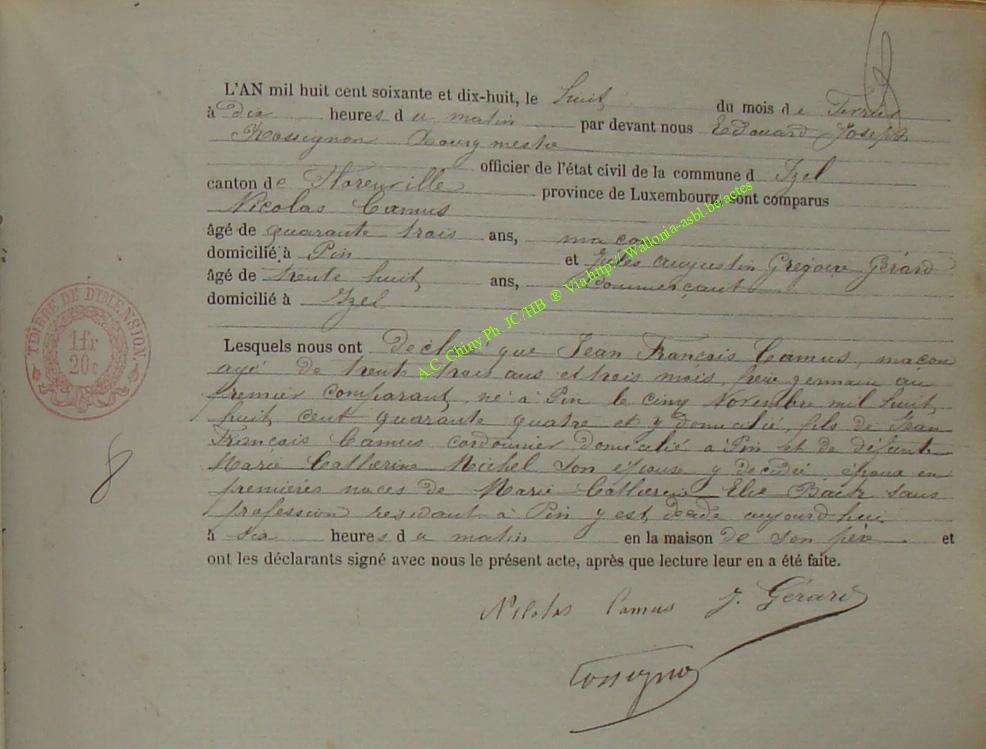 L'AN mil huit cent soixante et dix-huit, le huit du mois de Fevrier
à dix heures du matin par devant nous Edouard Joseph
Rossignon Bourgmestre
officier de l'état civil de la commune d Izel
canton de Florenville province de Luxembourg, sont comparus
Nicolas Camus
âgé de quarante trois ans, maçon
domicilié à Pin et Jules Augustin Grégoire Gérard
âgé de trente huit ans, Commerçant
domicilié à Izel
Lesquels nous ont déclaré que Jean François Camus maçon
agé de trente trois ans et trois mois, frère germain au
premier comparant, né à Pin le cinq Novembre mil huit
huit cent quarante quatre et y domicilié, fils de Jean
François Camus cordonnier domicilié à Pin et de défunte
Marie Catherine Michel son épouse y décédée, époux en
premières noces de Marie Catherine Elie sans
profession residant à Pin y est décédé aujourd'hui
à six heures du matin en la maison de son père et
ont les déclarants signé avec nous le présent acte, après que lecture leur en a été faite.
Nicolas Camus J. Gérard
Rossignon
TIMBRE DE DIMENSION
1fr
20c
8
A.C. Chiny Ph. JC/HB ® Via http://Wallonia-asbl.be/actes